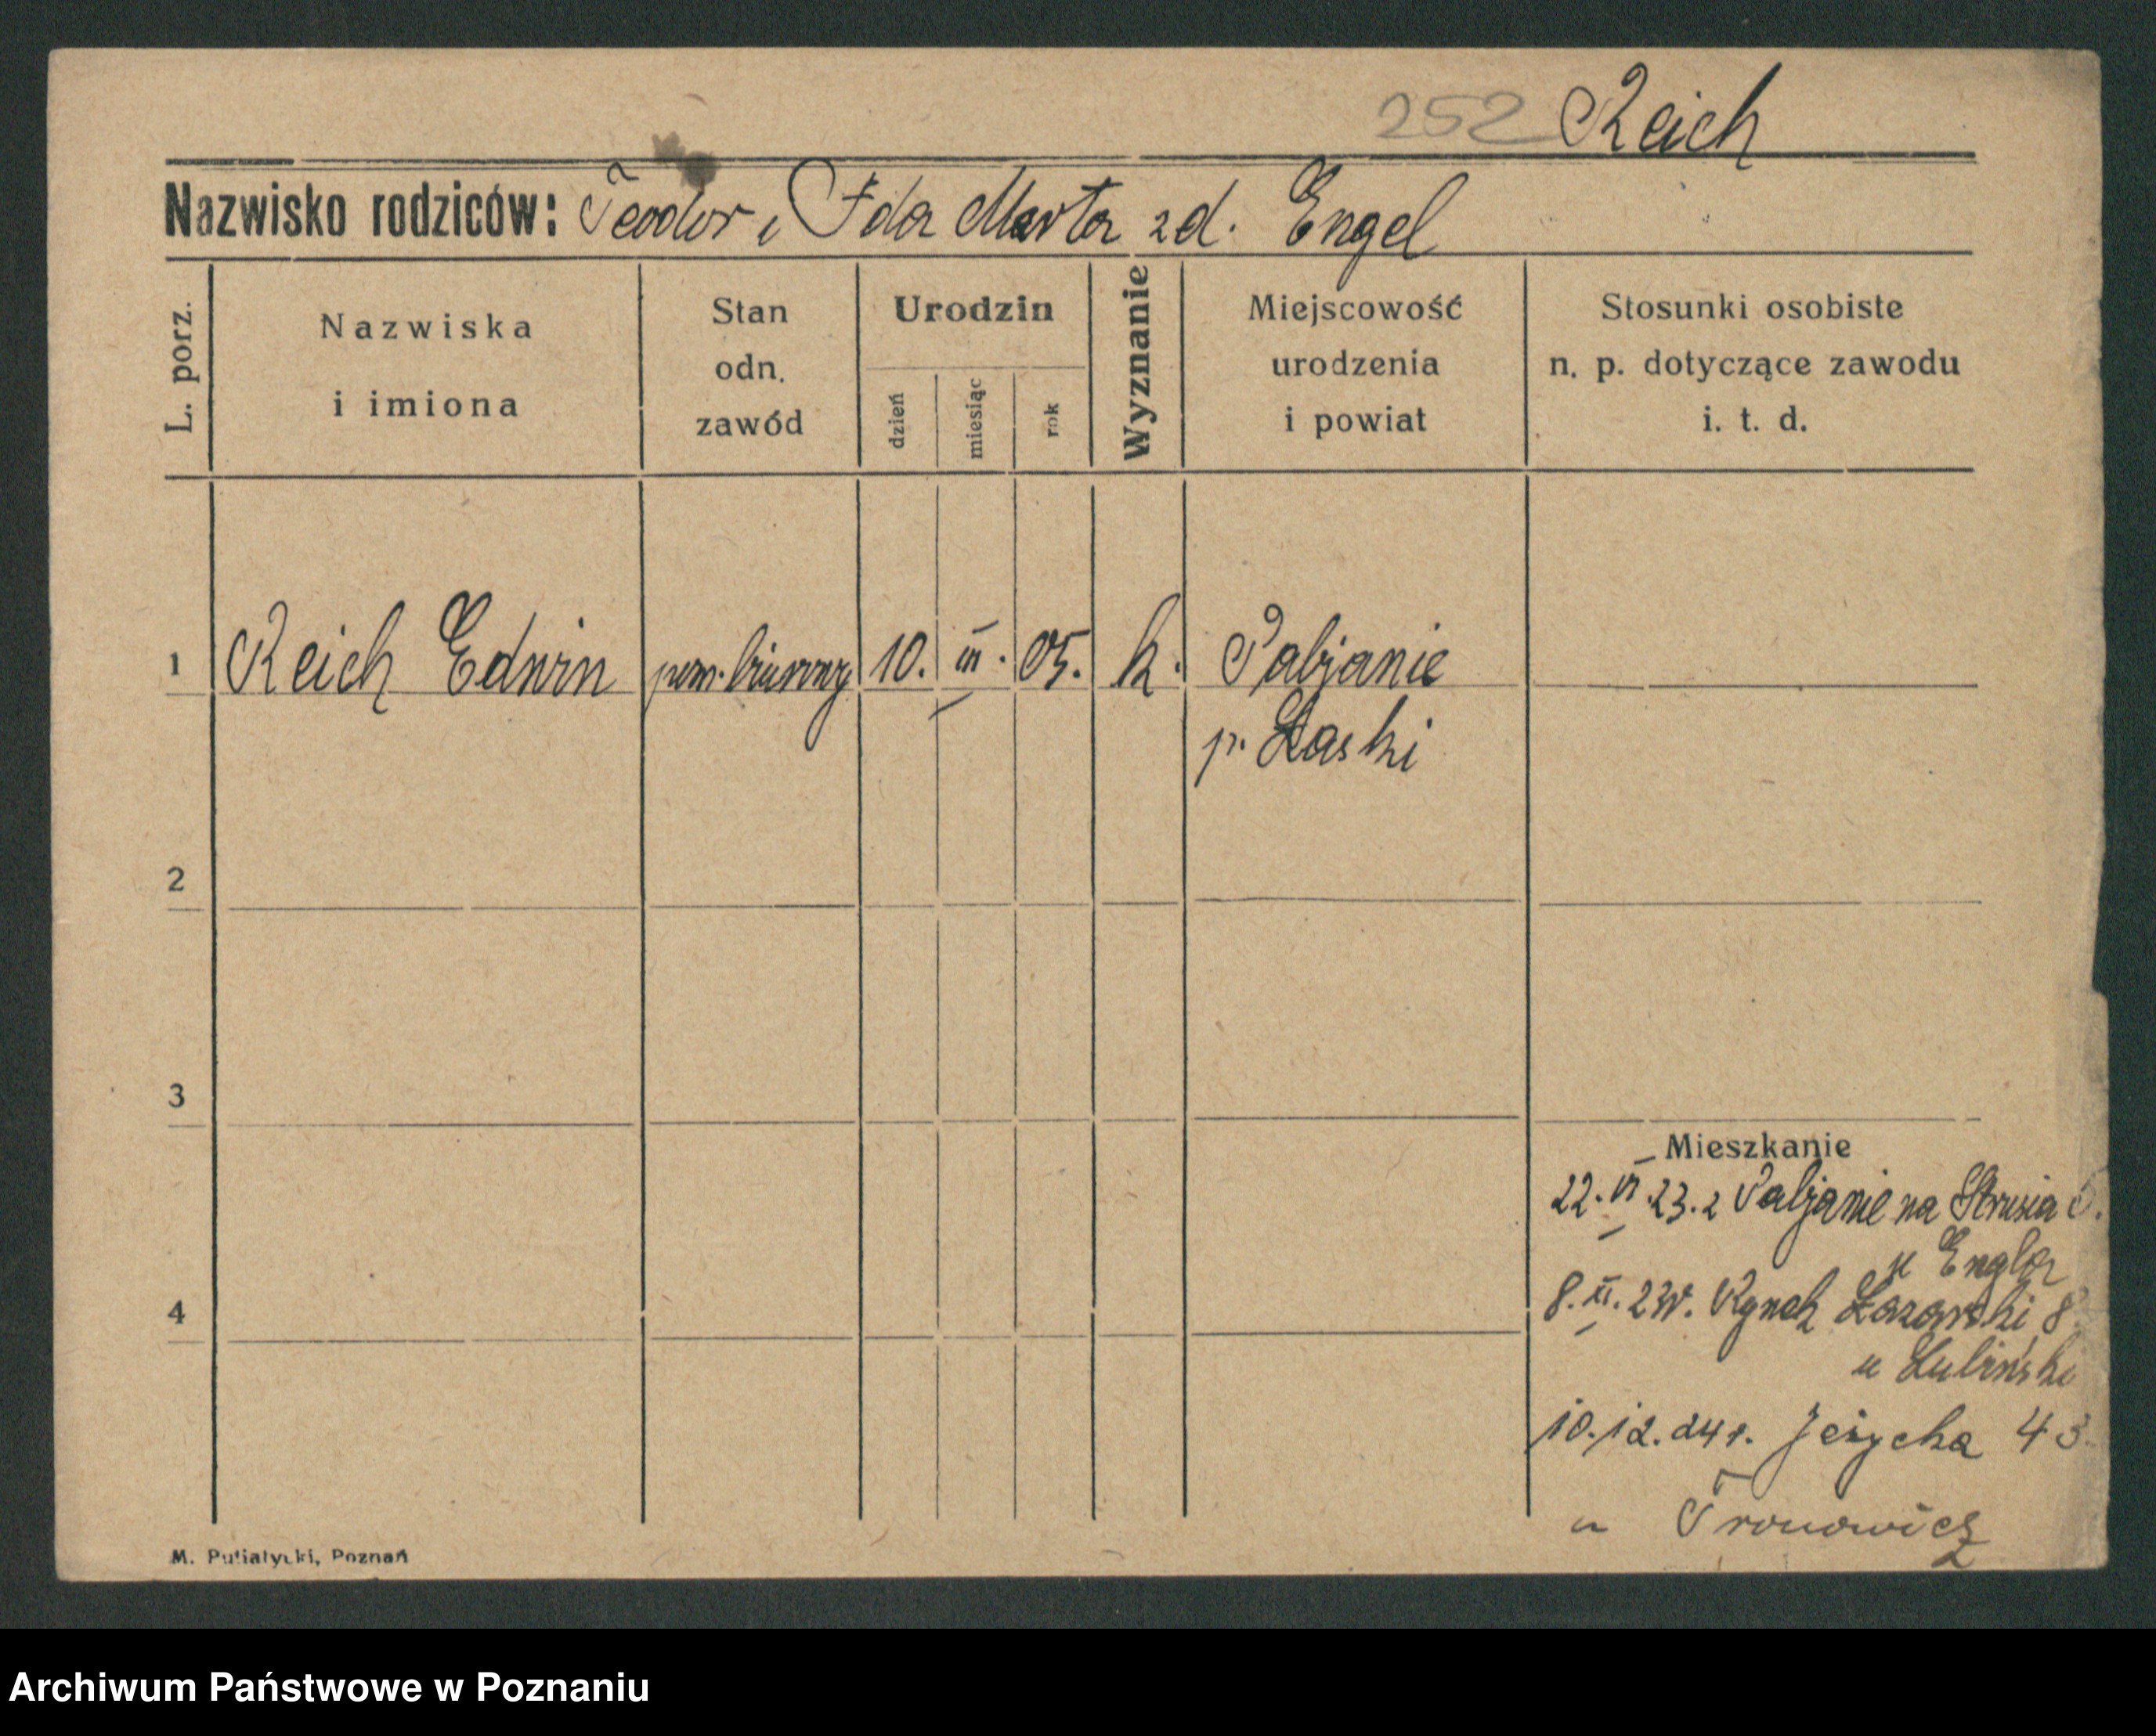 252 Reich
Nazwisko rodziców: Teodor i Ida Marta zd. Engel
L. porz.
Nazwiska
i imiona
Stan
odn.
zawód
Urodzin
dzień
miesiąc
rok
Wyznanie
Miejscowość
urodzenia
i powiat
Stosunki osobiste
n. p. dotyczące zawodu
i. t. d.
1 Reich Edwin pom. biurowy 10. III. 05. k. Pabjanie
p. Łaski
2
3
Mieszkanie
22. VI. 23. z Pabjanie na Strusia
u Engla
4
8. XI. 23r. Rynek Łazarski 8
u Lubiński
10.12.24 r. Jeżycka 43
u Tronowicz
M. Putiatycki, Poznań
Archiwum Państwowe w Poznaniu